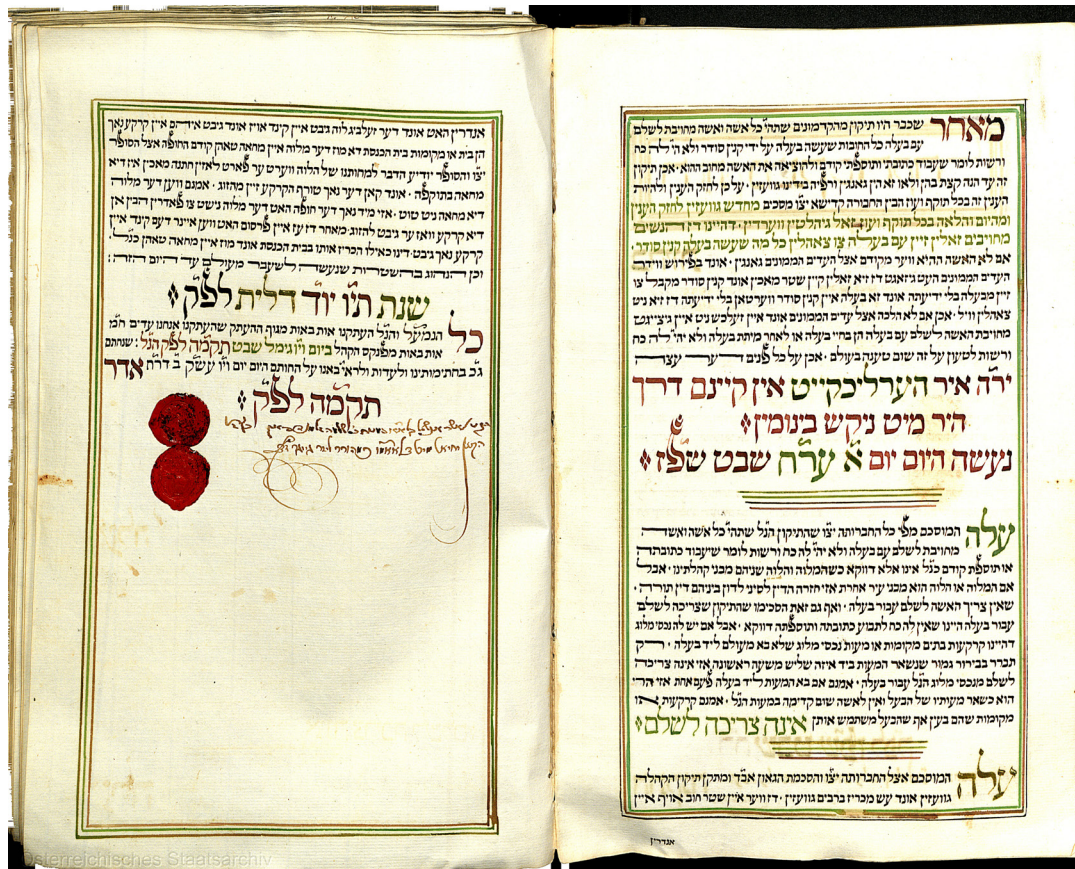 מאחר שכבר היו תיקון מהקדמונים שתהי' כל אשה ואשה מחויבת לשלם
עם בעלה כל החובות שעשה בעלה על ידי קנין סודר ולא יהי' לה כח
ורשות לומר שעבוד כתובתי ותוספתי קודם ולהוציא את האשה מחוב ההוא· אכן תיקון
זה עד הנה קצת בהן ולאו זא הין גאנגין ורפיה בידינו גוועזין· על כן לחזק הענין ולהיות
הענין זה בכל תוקף ועוז הבין החבורה קדישא יצ"ו מסכים מחדש גוועזין לחזק הענין
ומהיום והלאה בכל תוקף ועוז זאל גיהלטין ווערדין· דהיינו דיא הנשים
מחויבים זאלין זיין עם בעלה צו צאהלין כל מה שעשה בעלה קנין סודר·
אם לא האשה ההיא ווער מקודם אצל העדים הממונים גאנגין· אונד בפירוש ווידר
העדים הממונים העט גיזאגט דז זיא זאלין קיין שטר מאכין אונד קנין סודר מקבל צו
זיין מבעלה בלי ידיעתה אונד זא בעלה איין קנין סודר ווערטאן בלי ידיעתה דז זיא ניט
צאהלין וויל· אכן אם לא הלכה אצל עדים הממונים אונד איין זעלכש ניט איין גיצייגט
מחויבת האשה לשלם עם בעלה הן בחיי בעלה או לאחר מיתת בעלה ולא יהי' לה כח
ורשות לטעון על זה שום טענה בעולם· אכן על כל פנים דער עצה
ירה איר הערליכקייט אין קיינם דרך
היר מיט ניקש בינומין
נעשה היום יום א' ער"ח שבט שפ"ז
עלה המוסכם מפי כל החברותה יצ"ו שהתיקון הנ"ל שתהי' כל אשה ואשה
מחויבת לשלם עם בעלה ולא יהי' לה כח ורשות לומר שיעבוד כתובתה
או תוספת קודם כנ"ל אינו אלא דווקא כשהמלוה והלוה שניהם מבני קהלתינו· אבל
אם המלוה או הלוה הוא מבני עיר אחרת אזי חזרה הדין לסיני לדון ביניהם דין תורה·
שאין צריך האשה לשלם עבור בעלה· ואף גם זאת הסכימו שהתיקון שצריכה לשלם
עבור בעלה היינו שאין לה כח לתבוע כתובתה ותוספתה דווקא· אבל אם יש לה נכסי מלוג
דהיינו קרקעות בתים מקומות או מעות נכסי מלוג שלא בא מעולם ליד בעלה· רק
תברר בבירור גמור שנשאר המעות ביד איזה שליש משעה ראשונה אזי אינה צריכה
לשלם מנכסי מלוג הנ"ל עבור בעלה· אמנם אם בא המעות ליד בעלה פעם אחת אזי הרי
הוא כשאר מעותיו של הבעל ואין לאשה שום קדימה במעות הנ"ל· אמנם קרקעות או
מקומות שהם בעין אף שהבעל משתמש אותן אינה צריכה לשלם
עלה המוסכם אצל החברותה יצ"ו והסכמת הגאון אב"ד ומתקן תיקון הקהלה
גוועזין אונד עש מכריז ברבים גוועזין· דז ווער איין שטר חוב אויף איין
אנדרין
אנדרין האט אונד דער זעלביג לוה גיבט איין קינד אויז אונד גיבט אידהם איין קרקע נאך
הן בית או מקומות בית הכנסת דא מוז דער מלוה איין מחאה טאהן קודם החופה אצל הסופר
יצ"ו והסופר יודיע הדבר למחותנו של הלוה ווערט ער פארט לאזין חתנה מאכין איז דיא
מחאה בתוקפה· אונד קאן דער נאך טורף הקרקע זיין מהזוג· אמנם ווען דער מלוה
דיא מחאה ניט טוט· אזי מיד נאך דער חופה האט דער מלוה נישט צו פאדרין הבין אן
דיא קרקע וואז ער גיבט להזוג· מאחר דז עז איין פרסום האט ווען איינר דעם קינד איין
קרקע נאך גיבט· דינו כאילו הכריז אותו בית הכנסת אונד מוז איין מחאה טאהן כנ"ל·
וכן הנהוג ברהשטרות שנעשה לשעבר מעולם עד היום הזה:
שנת תי"ו יו"ד דלי"ת לפ"ק
כל הנמע"ל והנ"ל העתקנו אות באות מגוף ההעתק שהעתקנו אנחנו עדים ח"מ
אות באות מפנקס הקהל ביום וי"ו גימל שבט תקמ"ה לפ"ק הנ"ל: שנחתם
ג"כ בחתימותינו ולעדות ולראי' באנו על החותם היום יום וי"ו עש"ק ב' דר"ח אדר
תקמ"ה לפ"ק
Österreichisches Staatsarchiv